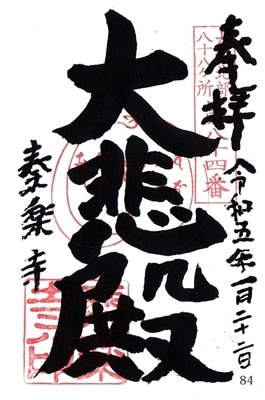 奉拝
令和五年一月二十二日
八十八ヶ所
八十四番
大悲殿
秦楽寺
84